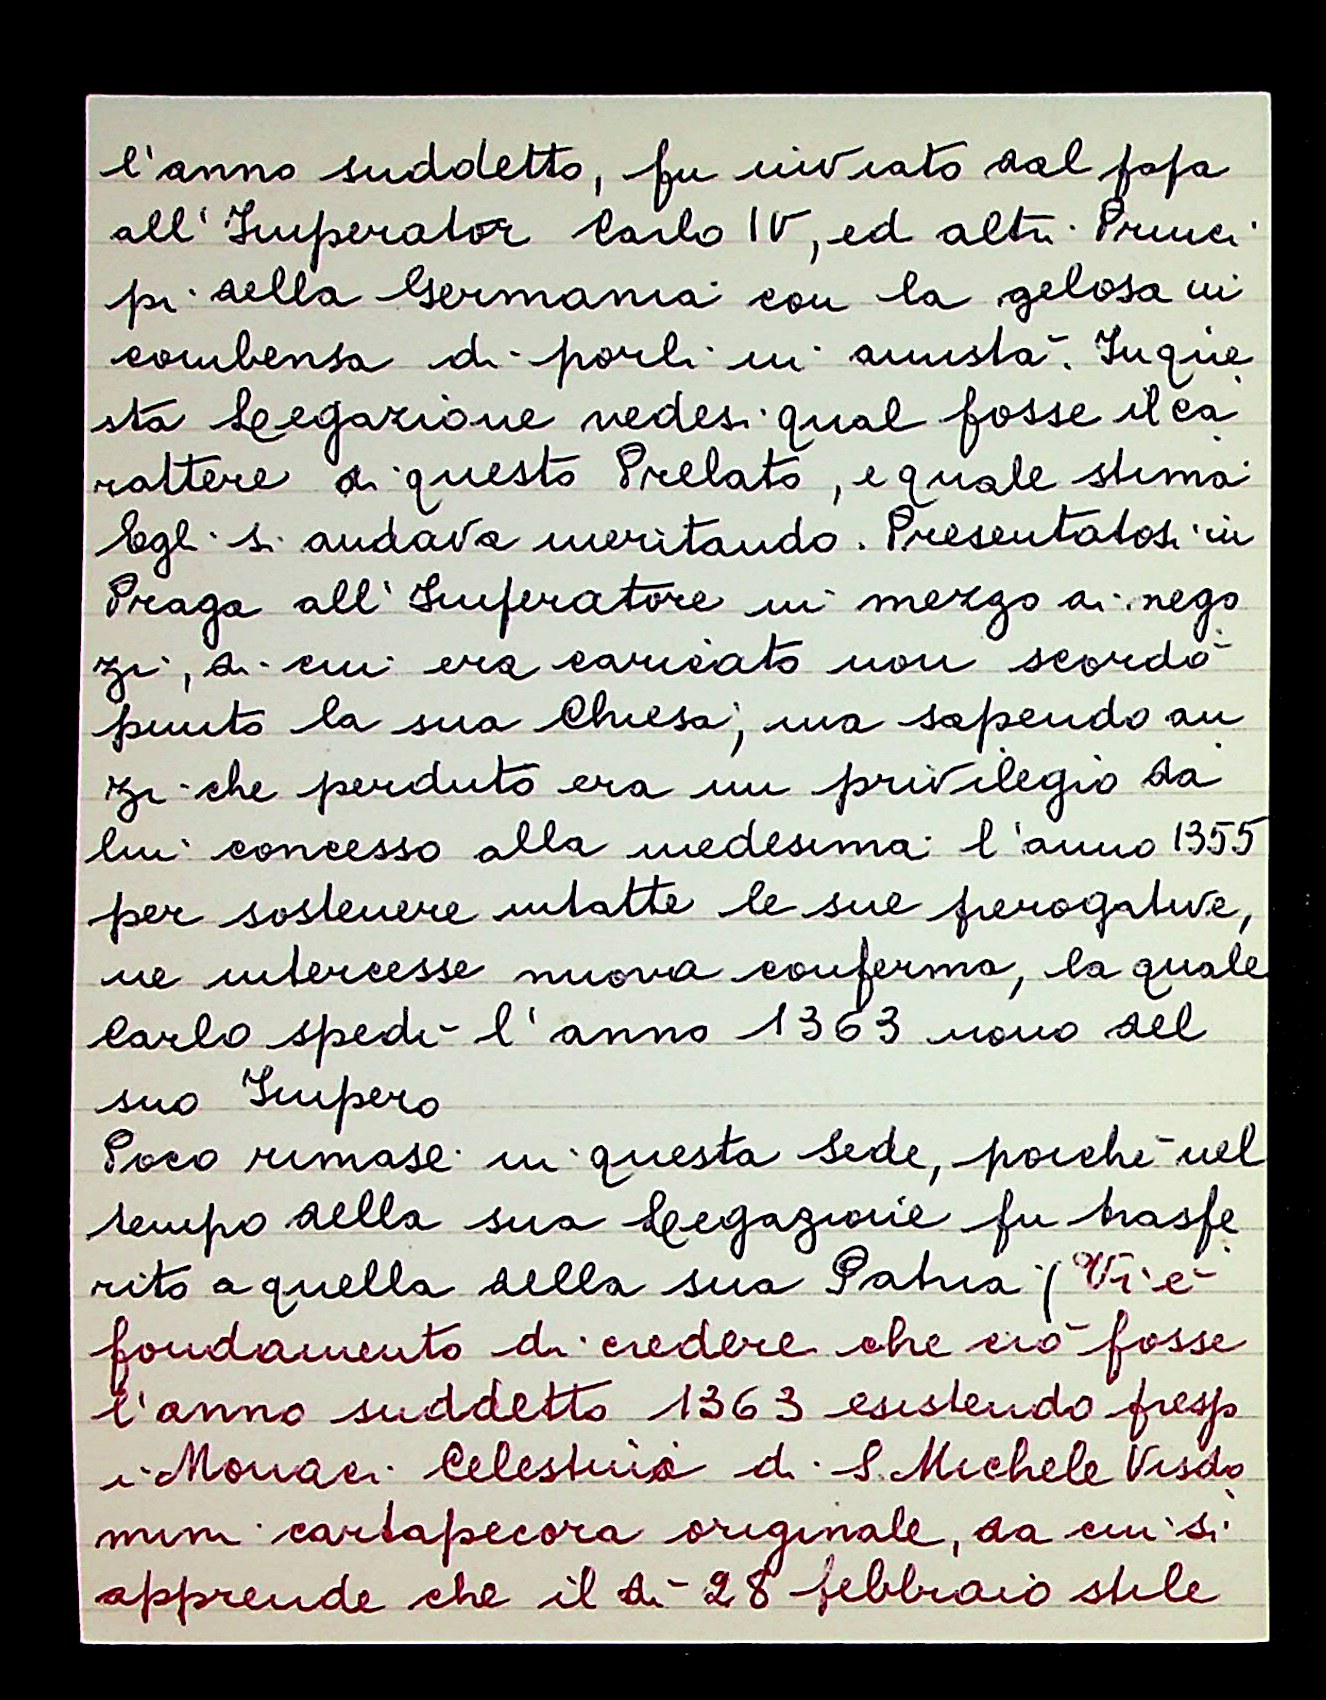 l'anno suddetto, fu inviato dal papa
all'Imperator Carlo IV, ed altri Princi
pi della Germania con la gelosa in
combensa di porli in amistà. In que
sta Legazione vedesi qual fosse il ca
rattere di questo Prelato, e quale stima
Egli si andava meritando. Presentatosi in
Praga all'Imperatore in mezzo ai nego
zi, di cui era caricato non scordò
punto la sua Chiesa; ma sapendo an
zi che perduto era un privilegio da
lui concesso alla medesima l'anno 1355
per sostenere intatte le sue prerogative,
ne intercesse nuova conferma, la quale
Carlo spedì l'anno 1363 nono del
suo Impero
Poco rimase in questa Sede, poichè nel
tempo della sua Legazione fu trasfe
rito a quella della sua Patria (Vi è
fondamento di credere che ciò fosse
l'anno suddetto 1363 esistendo presso
i Monaci Celestini di S. Michele Visdo
mini cartapecora originale, da cui si
apprende che il dì 28 febbraio stile